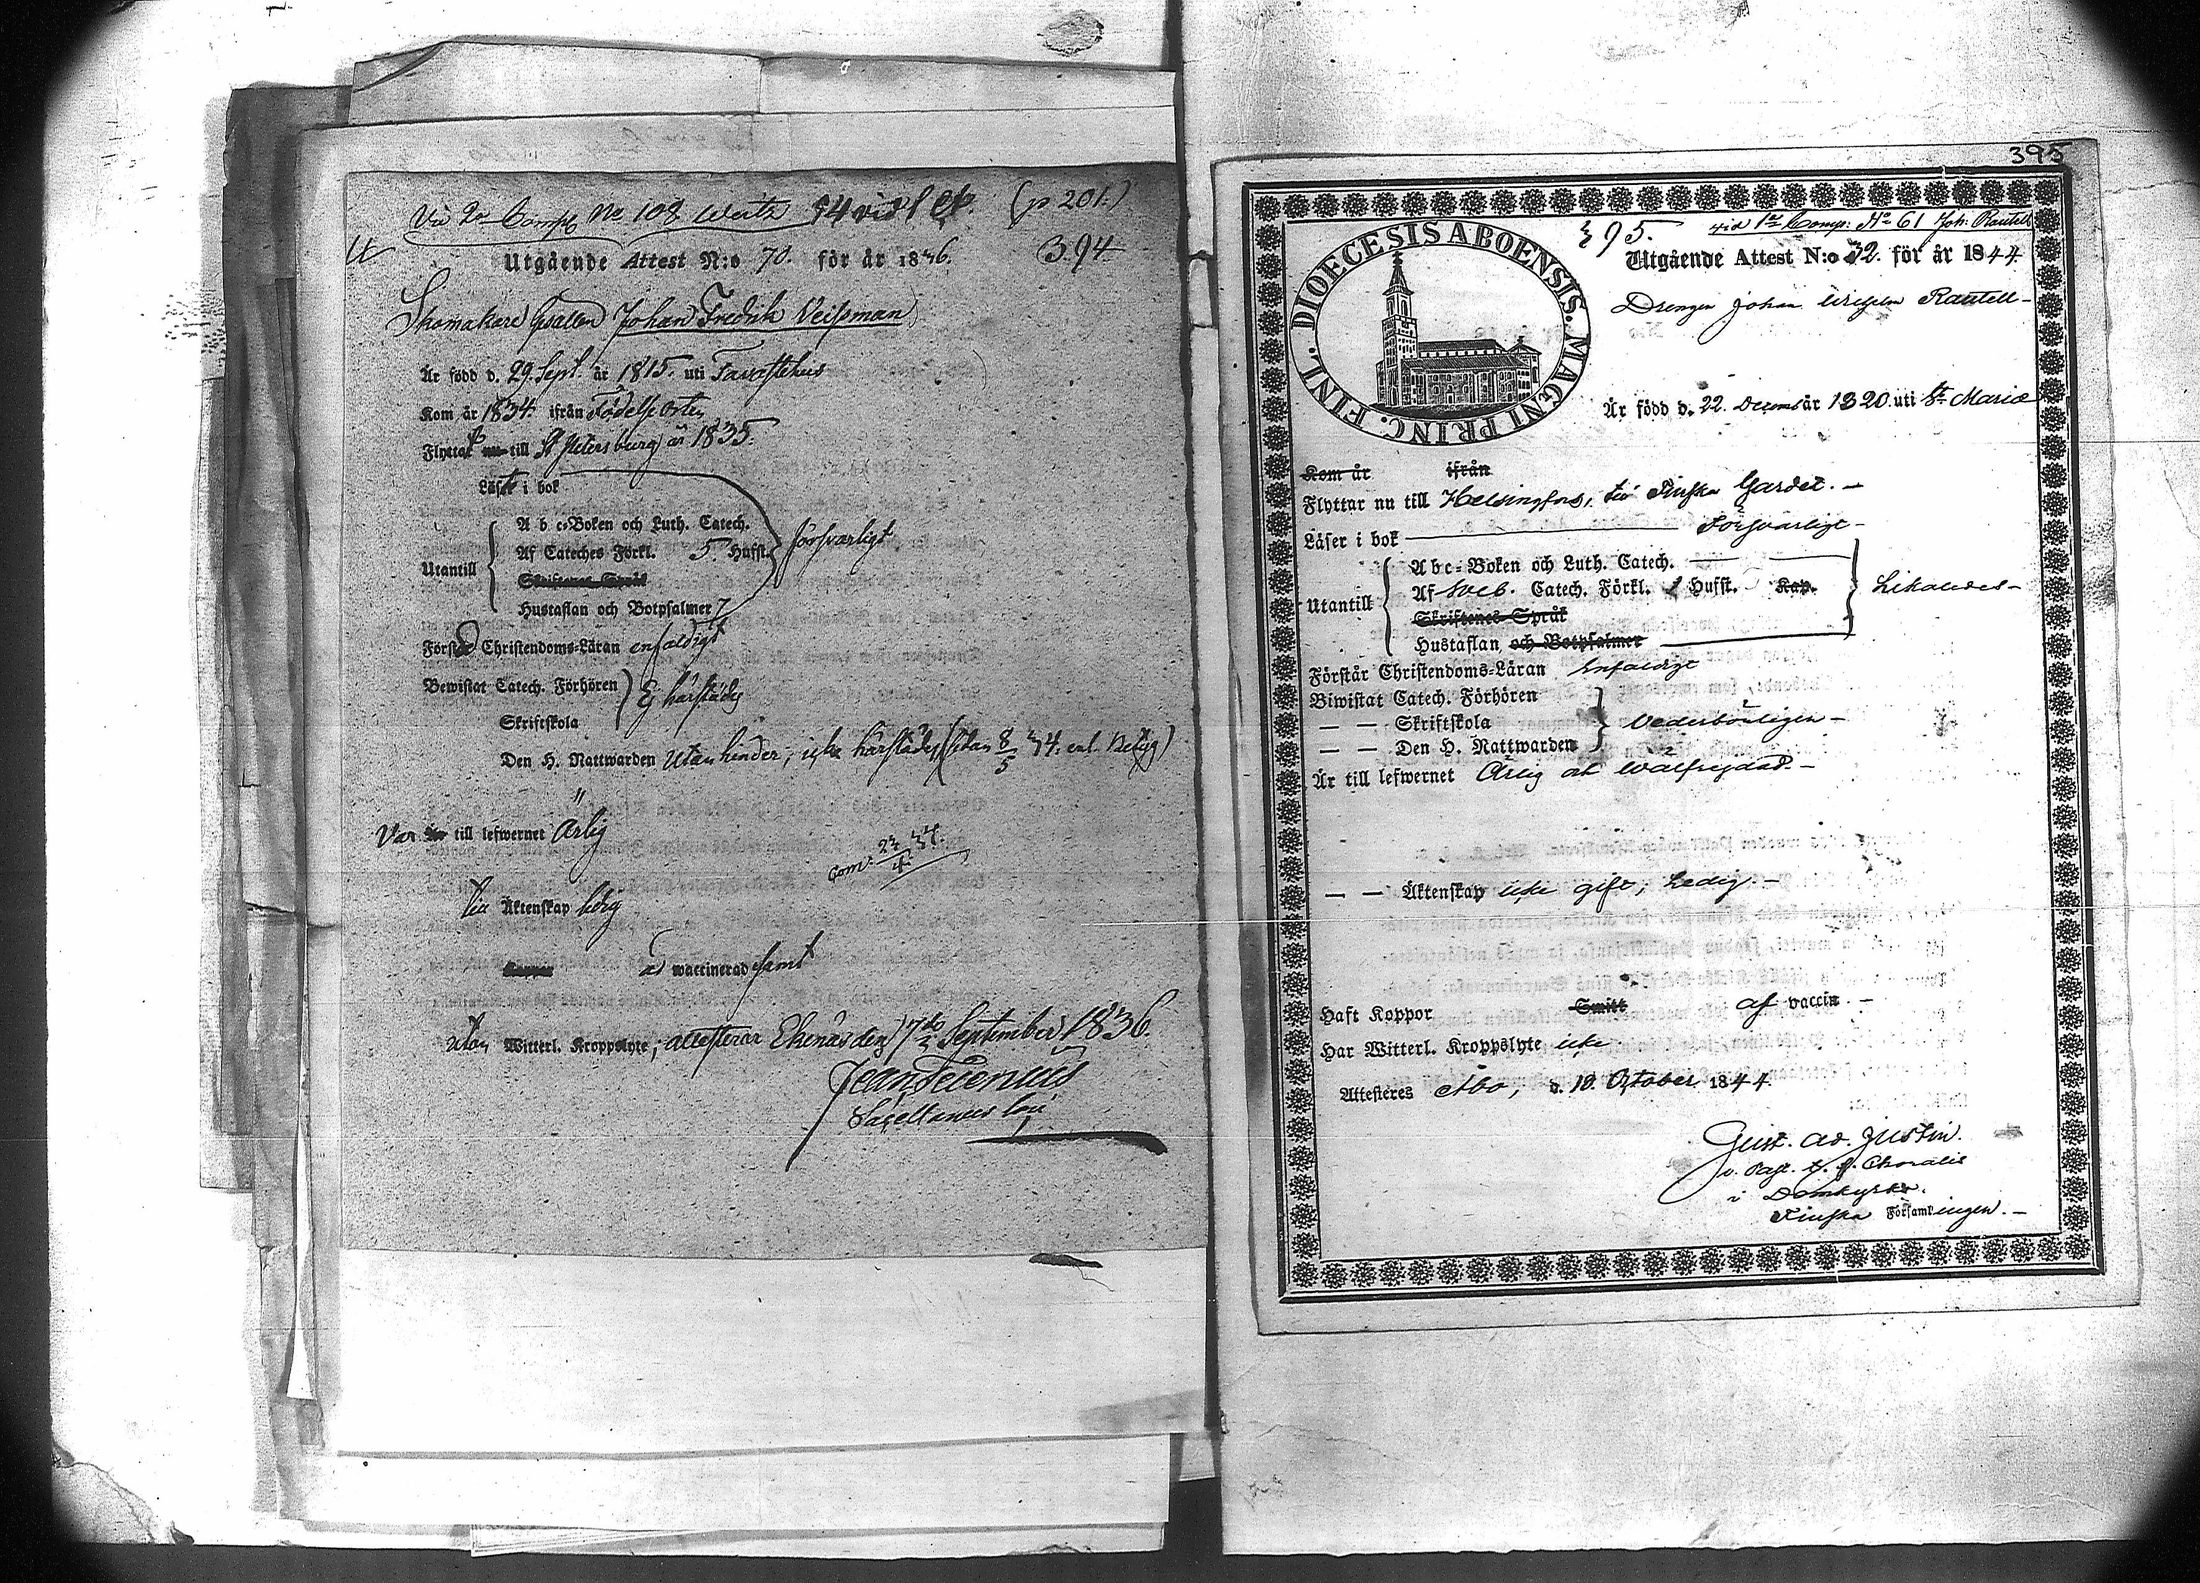 Vid 2a Comp. No 108 (p 201.)
Utgående Attest N:o 70. för år 1836. 394
Skomakare Gesällen Johan Fredrik Veissman
Är född d. 29 Sept. år 1815. uti Tavastehus
Kom år 1834 ifrån Födelseorten
Flyttat nu till St Petersburg år 1835.
Läste i bok
A b c-Boken och Luth. Catech.
Af Cateches Förkl. 5 Hufst. försvarligt
Utantill
Skriftenes Språk
Hustaflan och Botpsalmer 7
Förstod Christendoms-Läran enfaldigt
Bewistat Catech. Förhören Ej härstädes
Skriftskola
Den H. Nattwarden utan hinder, icke härstädes
Var är till lefwernet Ärlig
Till Äktenskap ledig
Koppor wactinerad samt
utan Witterl. Kroppslyte, attesterar Ekenäs den 7de September 1836.
Sacellanus
395
395. vid 1a Comp. No 61 Joh. Rautell
DIOECESIS ABOENSIS. MAGNI PRINC. FINL.
Utgående Attest N:o 32. för år 1844
Drengen Johan Wilhelm Rautell-
Är född d. 22 Decemb år 1820. uti St Mariæ
Kom år ifrån
Flyttar nu till Helsingfors, till Finska Gardet. -
Läser i bok Försvarligt -
A b c-Boken och Luth. Catech.
Utantill Af Sveb. Catech. Förkl. Hufst. Kap. Likaledes -
Skriftenes Språk
Hustaflan och Botpsalmer
Förstår Christendoms-Läran Enfaldigt
Biwistat Catech. Förhören
— — Skriftskola Vederbörligen -
— — Den H. Nattwarden
Är till lefwernet Ärlig och Wälfrejdad. -
— — Äktenskap icke gift, Ledig. -
Haft Koppor Smitt af vaccin. -
Har Witterl. Kroppslyte icke
Attesteres Åbo, d. 10 October 1844.
Gust. Ad. Justin.
i Domkyrko.
Finska Församlingen. -